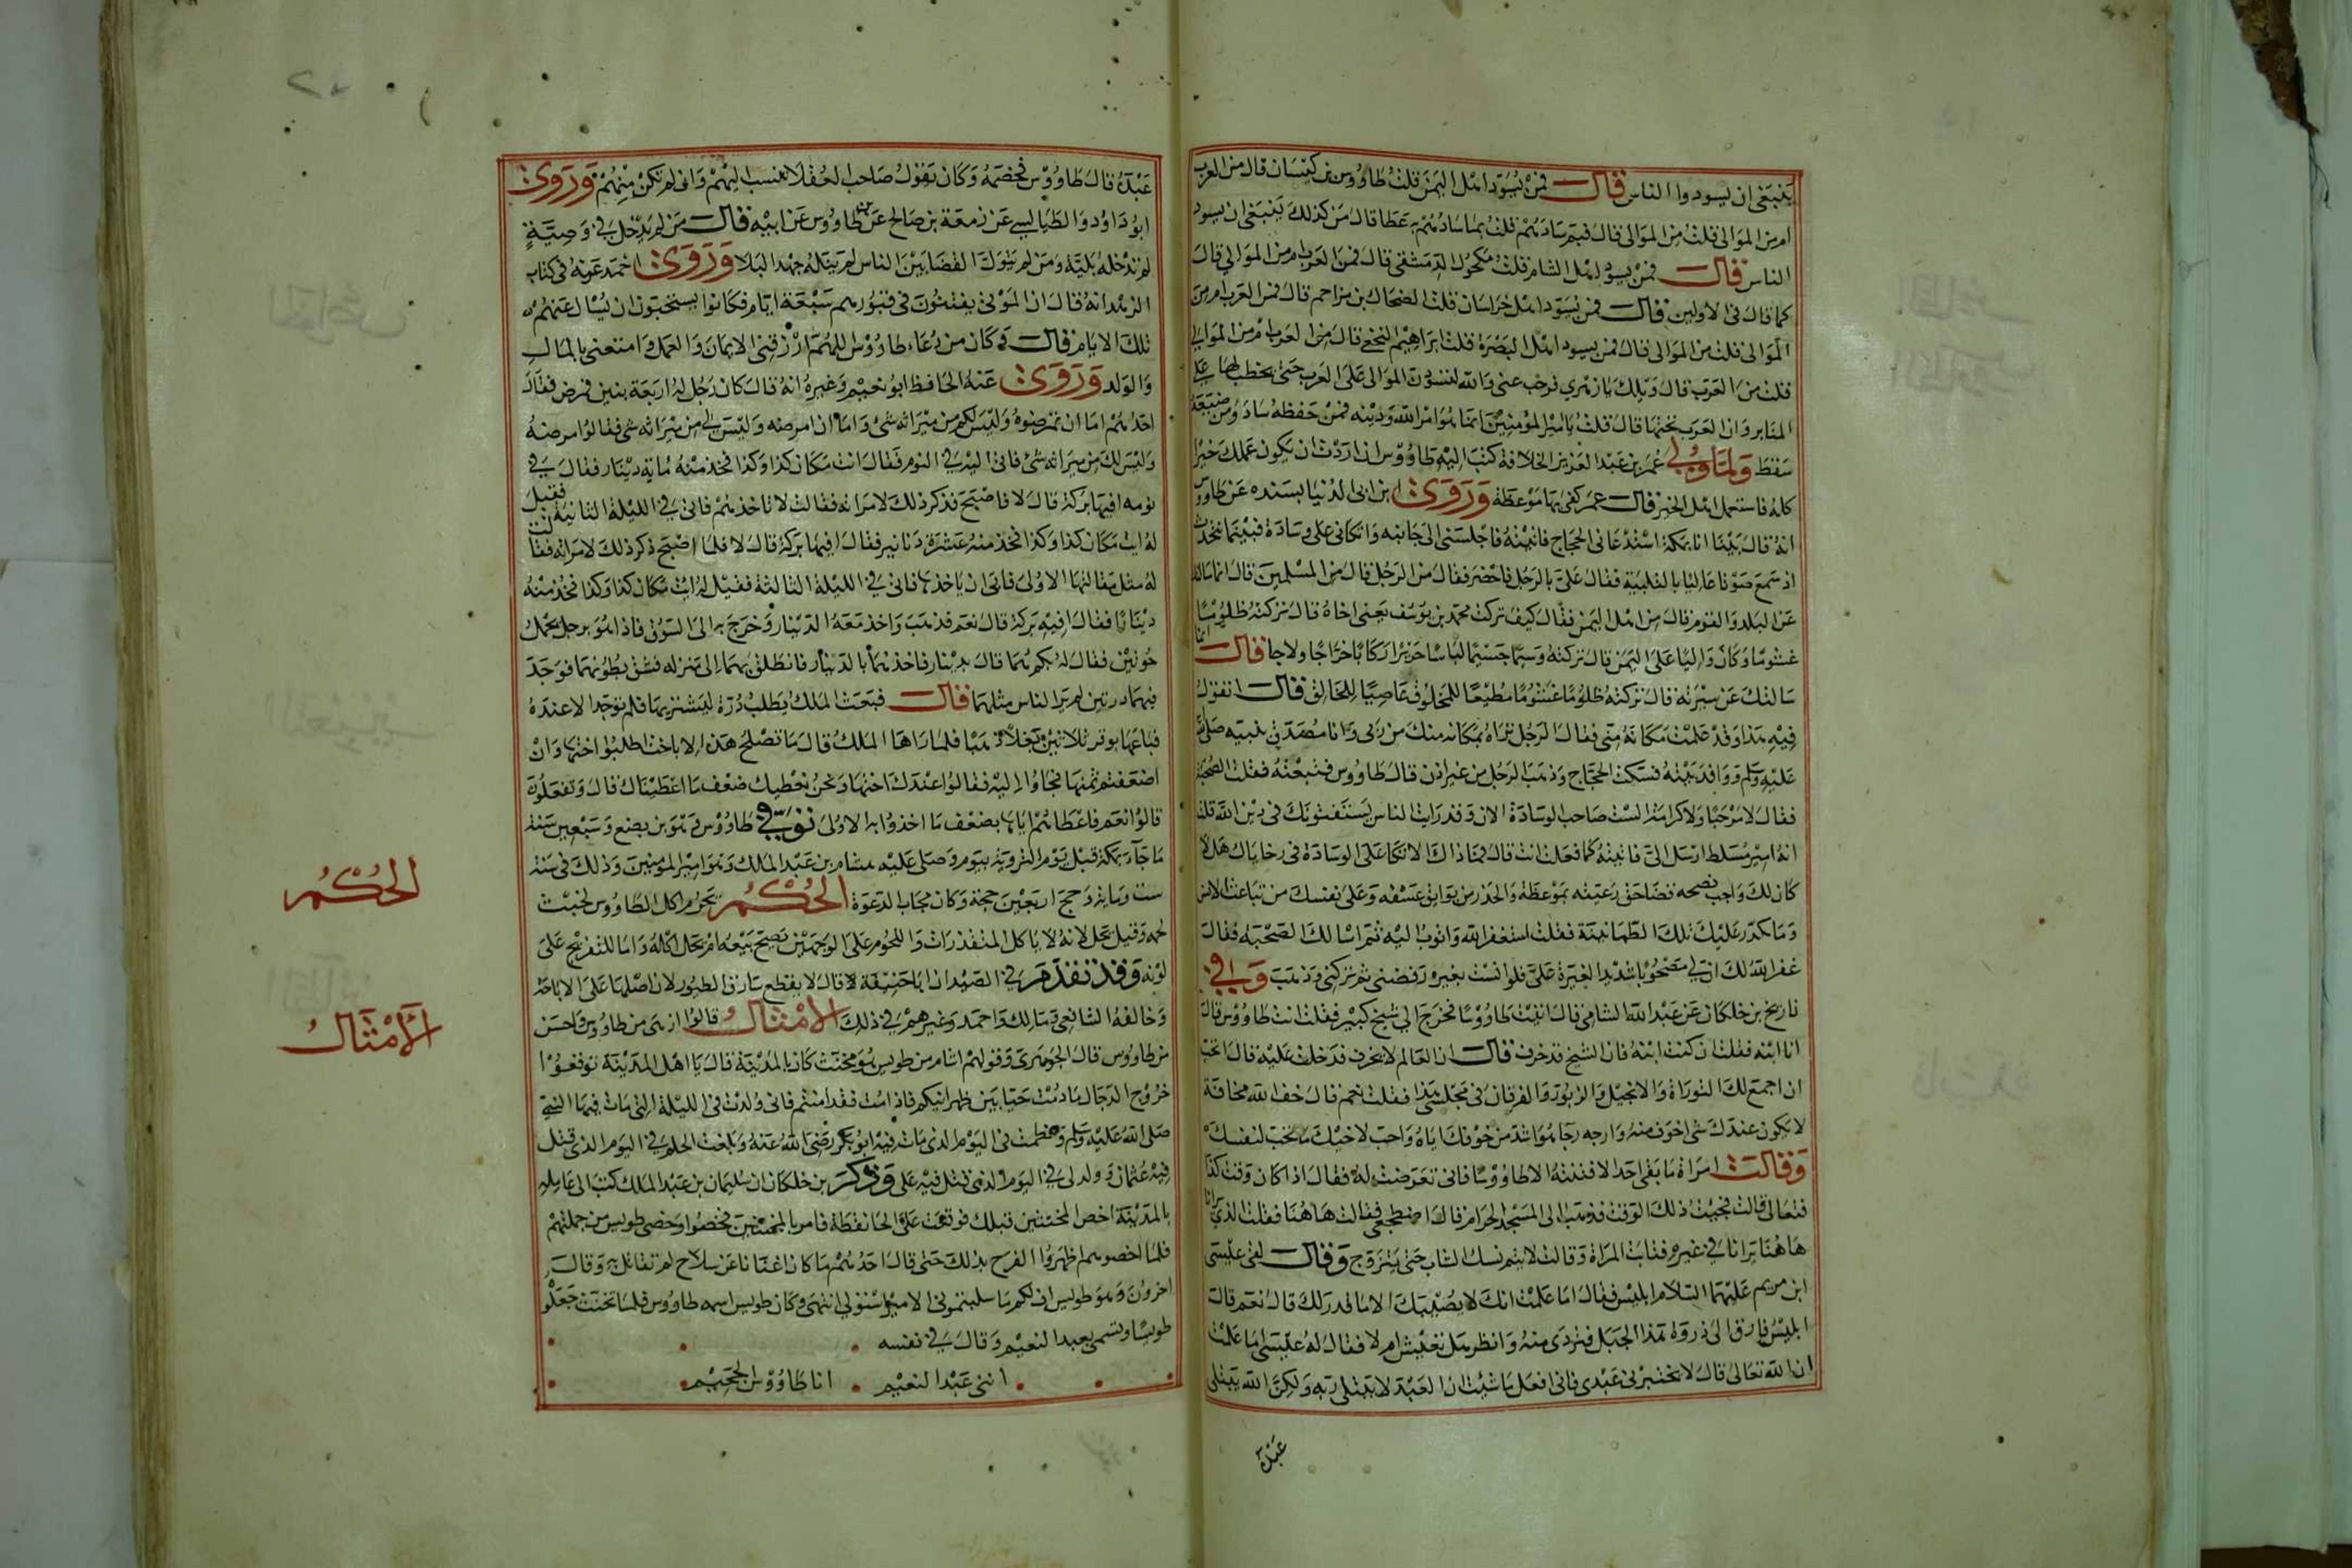 ينبغي ان يسودوا الناس قال فمن يسود اهل اليمن قلت طاووس بن كيسان قال من العرب
ام من الموالى قلت من الموالى قال فبم سادهم قلت بما سادهم به عطا قال من كذلك ينبغى ان يسود
الناس قال فمن يسود اهل الشام قلت مكحول الدمشقى قال فمن العرب ام من الموالي قال
كما قال فى الاولين قال فمن يسود اهل خراسان قلت الضحاك بن مزاحم قال فمن العرب ام من
الموالى قلت من الموالى قال فمن يسود اهل البصرة قلت ابراهيم النخعي قال من العرب ام من الموالي
قلت من العرب قال ويلك يا زهري فرجت عني والله لتسودن الموالى على العرب حتى يخطب لها على
المنابر وان العرب تحتها قال قلت يا امير المؤمنين انما هو امر الله ودينه فمن حفظه ساد ومن ضيعه
سقط ولما ولي عمر بن عبد العزيز الخلافة كتب اليه طاووس ان اردت ان يكون عملك خيرا
كله فاستعمل اهل الخير قال عمر كفى بها موعظة وروى ابن ابى الدنيا بسنده عن طاووس
انه قال بينا انا بمكة استدعانى الحجاج فاتيته فاجلسنى الى جانبه واتكانى على وسادة فبينما نتحدث
اذ سمع صوتا عاليا بالتلبية فقال علي بالرجل فاحضر فقال من الرجل قال من المسلمين قال انما سالتك
عن البلد والقوم قال من اهل اليمن فقال كيف تركت محمد بن يوسف يعنى اخاه قال تركته ظلوما
غشوما وكان واليا على اليمن قال تركته وسيما جسيما لباسا حريرا ركابا خراجا ولاجا فقال انما
سالتك عن سيرته قال تركته ظلوما غشوما مطيعا للمخلوق عاصيا للخالق قال اتقول
فيه هذا وقد علمت مكانه مني فقال الرجل اتراه بمكانه منك اعز من مكانى من ربى وانا مصدق نبيه صلى الله
عليه وسلم ووافد بيته فسكت الحجاج وذهب الرجل من غير اذن قال طاووس فتبعته فقلت الصحبة
فقال لا مرحبا ولا كرامة الست صاحب الوسادة الان وقد رايت الناس يستفتونك فى دين الله قلت
انه امير مسلط ارسل الي فاتيته كما فعلت انت قال فما ذاك الاتكا على الوسادة فى رخا بال هلا
كان لك من واجب نصحه قضا حق رعيته بموعظة والحذر من بوايق عسفه وعلى نفسك من تباعة الانس
وما كدر عليك تلك الطمانينة فقلت استغفر الله واتوب اليه ثم اسالك الصحبة فقال
غفر الله لك ان لي مصحوبا شديد الغيرة علي فلو انست بغيره رفضنى ثم تركنى وذهب وفي
تاريخ بن خلكان عن عبد الله الشامي قال اتيت طاووسا فخرج الي شيخ كبير فقلت انت طاووس قال
انا ابنه فقلت ان كنت ابنه فان الشيخ قد خرف قال ان العالم لا يخرف فدخلت عليه قال اتحب
ان اجمع لك التوراة والانجيل والزبور والفرقان فى مجلسى هذا فقلت نعم قال خف الله مخافة
لا يكون عندك شى اخوف منه وارجه رجا هو اشد من خوفك اياه واحب لاخيك ما تحب لنفسك
وقالت امراة ما بقى احد الا فتنته الا طاووسا فانى تعرضت له فقال اذا كان وقت كذا
فتعالى قالت فجيت ذلك الوقت فذهب الى المسجد الحرام فقال اضطجعي فقالت هاهنا فقلت الذي يرانا
هاهنا يرانا في غيره فتابت المراة وقالت لا يتم نسك الشاب حتى يتزوج وقال لقى عيسى
ابن مريم عليهما السلام ابليس فقال اما علمت انك لا يصيبك الا ما قدر لك قال نعم قال
ابليس فارق الى ذروة هذا الجبل فتردى منه وانظر هل تعيش ام لا فقال له عيسى اما علمت
ان الله تعالى قال لا يختبرنى عبدى فانى افعل ما شئت ان العبد لا يبتلى ربه ولكن الله يبتلى
عبده
عبده قال طاووس فخصمه وكان يقول صاحب العقلا تنسب اليهم وان لم تكن منهم وروى
ابو داود الطيالسي عن زمعة بن صالح عن بن طاووس عن ابيه قال من لم يدخل في وصية
لم تدخله بلية ومن لم يتول القضا بين الناس لم ينله جهد البلا وروى احمد عنه فى كتاب
الزهد انه قال ان الموتى يفتنون فى قبورهم سبعة ايام فكانوا يستحبون ان يسال عنهم
تلك الايام قال وكان من دعاء طاووس اللهم ارزقنى الايمان والعمل وامتعنى بالمال
والولد وروى عنه الحافظ ابو نعيم وغيره انه قال كان رجل له اربعة بنين فمرض فقال
احدهم اما ان تمرضوه وليس لكم من ميراثه شى واما ان امرضه وليس لي من ميراثه شى فقالوا امرضه
وليس لك من ميراثه شى فاتى اليه في النوم فقال ايت مكان كذا وكذا فخذ منه ماية دينار فقال في
نومه افيها بركة قال لا فاصبح فذكر ذلك لامراته فقالت لا تاخذهم فاتى في الليلة الثانية فقيل
له ايت مكان كذا وكذا فخذ منه عشرة دنانير فقال افيها بركة قال لا فلما اصبح ذكر ذلك لامراته فقالت
له مثل مقالتها الاولى فابى ان ياخذها فاتى في الليلة الثالثة فقيل له ايت مكان كذا وكذا فخذ منه
دينارا فقال افيه بركة قال نعم فذهب واخذ معه الدينار وخرج به الى السوق فاذا هو برجل يحمل
حوتين فقال له بكم هما قال بدينار فاخذهما بالدينار فانطلق بهما الى منزله فشق بطونهما فوجد
فيهما درتين لم ير الناس مثلهما قال فبعث الملك يطلب درة ليشتريها فلم توجد الا عنده
فباعها بوقر ثلاثين بغلا ذهبا فلما راها الملك قال ما تصلح هذه الا باخت اطلبوا اختها وان
اضعفتم ثمنها فجاوا اليه فقالوا اعندك اختها ونحن نعطيك ضعف ما اعطيناك قال وتفعلون
قالوا نعم فاعطاهم اياها بضعف ما اخذوا به الاولى توفي طاووس وهو بن بضع وسبعين سنة
حاجا بمكة قبل يوم التروية بيوم وصلى عليه هشام بن عبد الملك وهو امير المومنين وذلك فى سنة
ست وماية وحج اربعين حجة وكان مجاب الدعوة الحكم يحرم اكل الطاووس لخبث
لحمه وقيل يحل لانه لا ياكل المستقذرات واللحوم على الوجهين يصح بيعه اما لحل اكله واما للتفرج على
لونه وقد تقدم في الصيد ان ابا حنيفة قال لا يقطع سارق الطيور لان اصلها على الاباحة
وخالفه الشافعى ومالك واحمد وغيرهم في ذلك الامثال قالوا ازهى من طاووس واحسن
من طاووس قال الجوهرى وقولهم اشام من طويس هو مخنث كان بالمدينة قال يا اهل المدينة توقعوا
خروج الدجال ما دمت حيا بين ظهرانيكم فاذا مت فقد امنتم فانى ولدت فى الليلة التى مات فيها النبي
صلى الله عليه وسلم وفطمت فى اليوم الذى مات فيه ابو بكر رضى الله عنه وبلغت الحلم في اليوم الذى قتل
فيه عثمان وولد لى في اليوم الذى قتل فيه على وذكر بن خلكان ان سليمان بن عبد الملك كتب الى عامله
بالمدينة احص المخنثين قبلك فوقعت على الحا نقطة فامر بالمخنثين فخصوا وخصى طويس من جملتهم
فلما اخصوهم اظهروا الفرح بذلك حتى قال احدهم ما كان اغنانا عن سلاح لم نقاتل به وقال
اخرون وهو طويس اف لكم ما سلبتمونى الا ميزاب بولي انتهى وكان طويس اسمه طاووس فلما تخنث جعلوه
طويسا ويسمى بعبد النعيم وقال في نفسه
اننى عبد النعيم انا طاووس الجحيم
الحكم
الأمثال